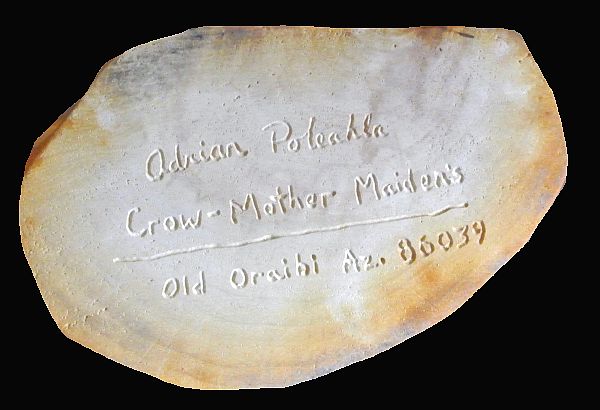 Adrian Poleahla
Crow-Mother Maiden's
Old Oraibi Az. 86039